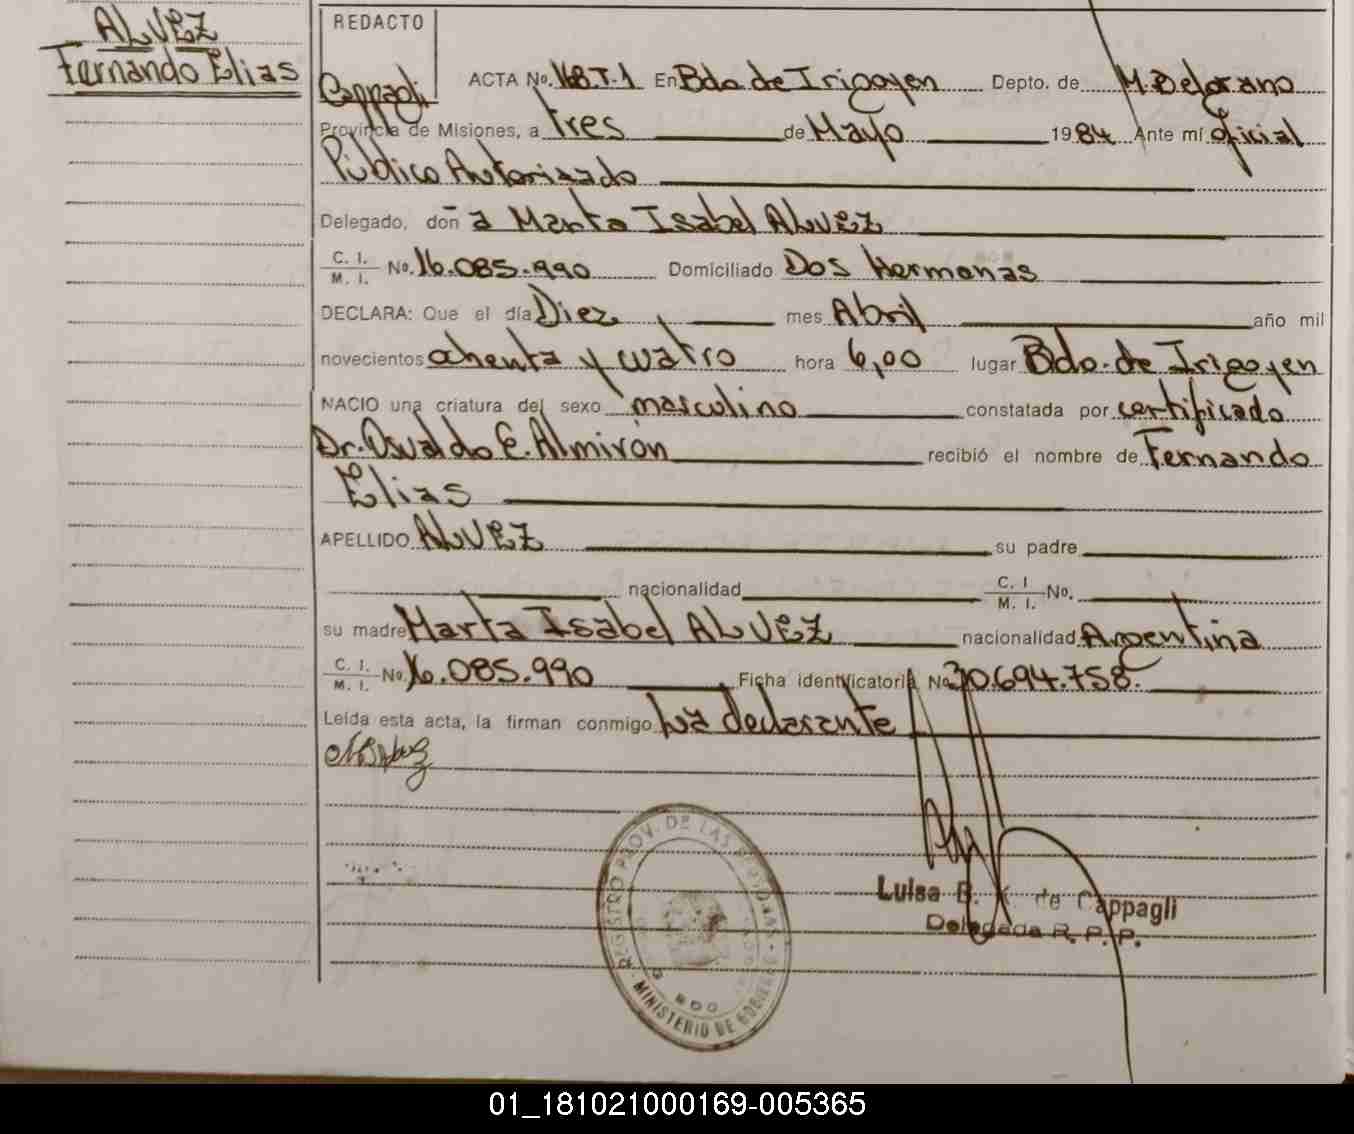 ALVEZ
Fernando Elias
REDACTO
Cappagli
ACTA No. 168.T-1 En Bdo de Irigoyen Depto. de M. Belgrano
Provincia de Misiones, a tres de Mayo 1984 Ante mí oficial
Público Autorizado
Delegado, doña Marta Isabel ALVEZ
C. I.
M. I. No. 16.085.990 Domiciliado Dos Hermanas
DECLARA: Que el día Diez mes Abril año mil
novecientos ochenta y cuatro hora 6,00 lugar Bdo. de Irigoyen
NACIO una criatura del sexo masculino constatada por certificado
Dr. Osvaldo E. Almirón recibió el nombre de Fernando
Elias
APELLIDO ALVEZ su padre
nacionalidad C. I. M. I. No.
su madre Marta Isabel ALVEZ nacionalidad Argentina
C. I.
M. I. No. 16.085.990 Ficha identificatoria No 30.694.758.
Leída esta acta, la firman conmigo La declarante
REGISTRO PROV. DE LAS PERSONAS
MINISTERIO DE GOBIERNO
Luisa B. K. de Cappagli
Delegada R. P. P.
01_181021000169-005365